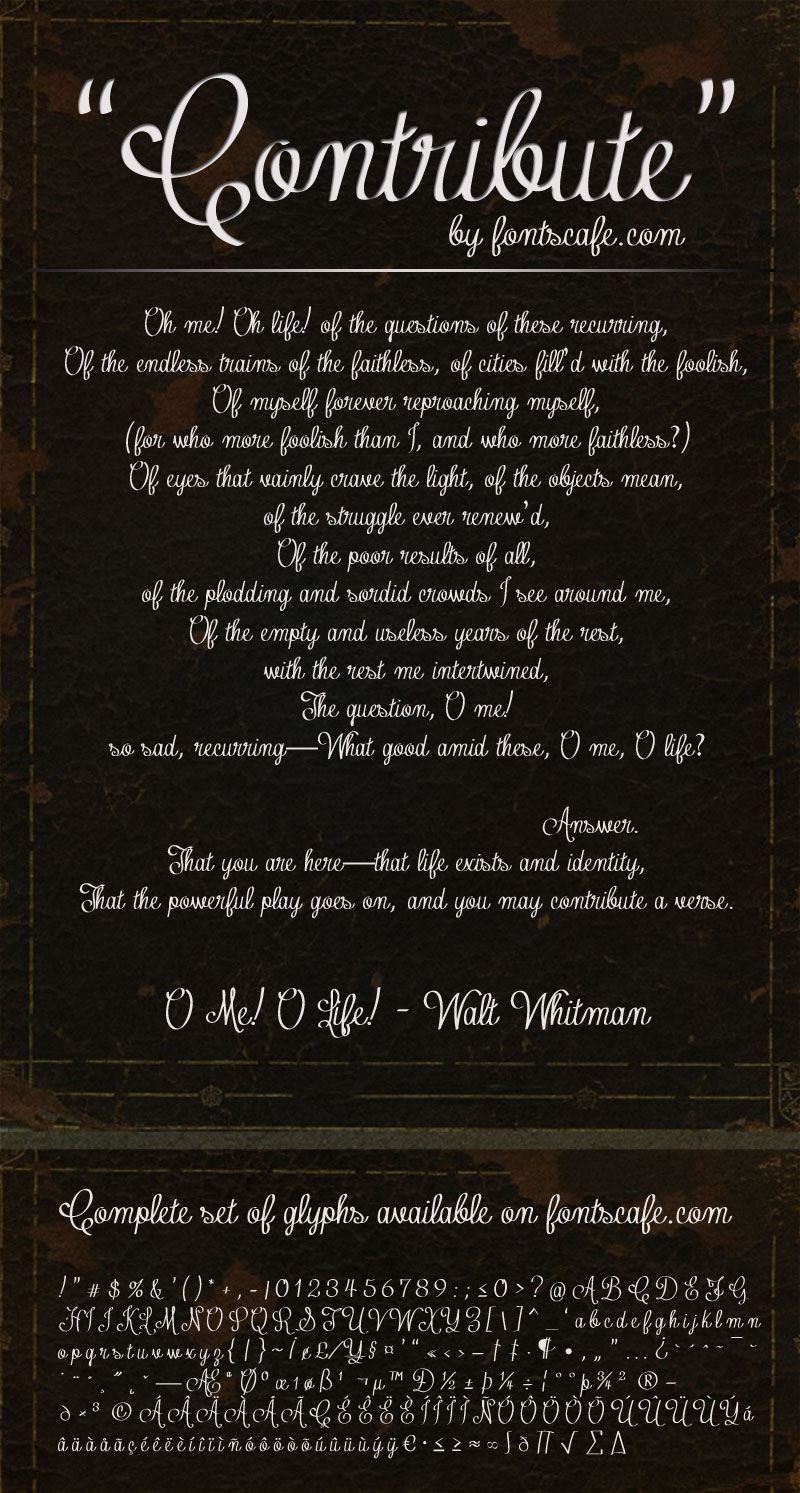 “Contribute”
by fontscafe.com
Oh me! Oh life! of the questions of these recurring,
Of the endless trains of the faithless, of cities fill’d with the foolish,
Of myself forever reproaching myself,
(for who more foolish than I, and who more faithless?)
Of eyes that vainly crave the light, of the objects mean,
of the struggle ever renew’d,
Of the poor results of all,
of the plodding and sordid crowds I see around me,
Of the empty and useless years of the rest,
with the rest me intertwined,
The question, O me!
so sad, recurring—What good amid these, O me, O life?
Answer.
That you are here—that life exists and identity,
That the powerful play goes on, and you may contribute a verse.
O Me! O Life! - Walt Whitman
Complete set of glyphs available on fontscafe.com
! " # $ % & ' ( ) * + , - / 0 1 2 3 4 5 6 7 8 9 : ; ≤ O > ? @ A B C D E F G
H I J K L M N O P Q R S T U V W X Y Z [ \ ] ^ _ ‘ a b c d e f g h i j k l m n
o p q r s t u v w x y z { | } ~ ¡ ¢ £ ⁄ ¥ § ¤ ' “ « ‹ › – † ‡ · ¶ • , „ ” … ¿ ` ´ ˆ ˜ ¯ ˘
˙ ¨ ˚ ¸ ˝ ˛ ˇ — Æ ª Ø º æ ı ø ß ¹ ¬ µ ™ Ð ½ ± þ ¼ ÷ ¦ ° ° þ ¾ ² ® –
ð × ³ © Á Â Ä À Å Ã Ç É Ê Ë È Í Î Ï Ì Ñ Ó Ô Ö Ò Õ Ú Û Ü Ù Ý á
â ä à å ã ç é ê ë è í î ï ì ñ ó ô ö ò õ ú û ü ù ý ÿ € · ≤ ≥ ≈ ∞ ∫ ∂ ∏ √ ∑ ∆